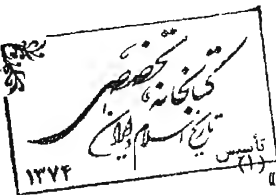 کتابخانه تخصصی
تاریخ اسلام و ایران
تأسیس ۱۳۷۴
(۱)